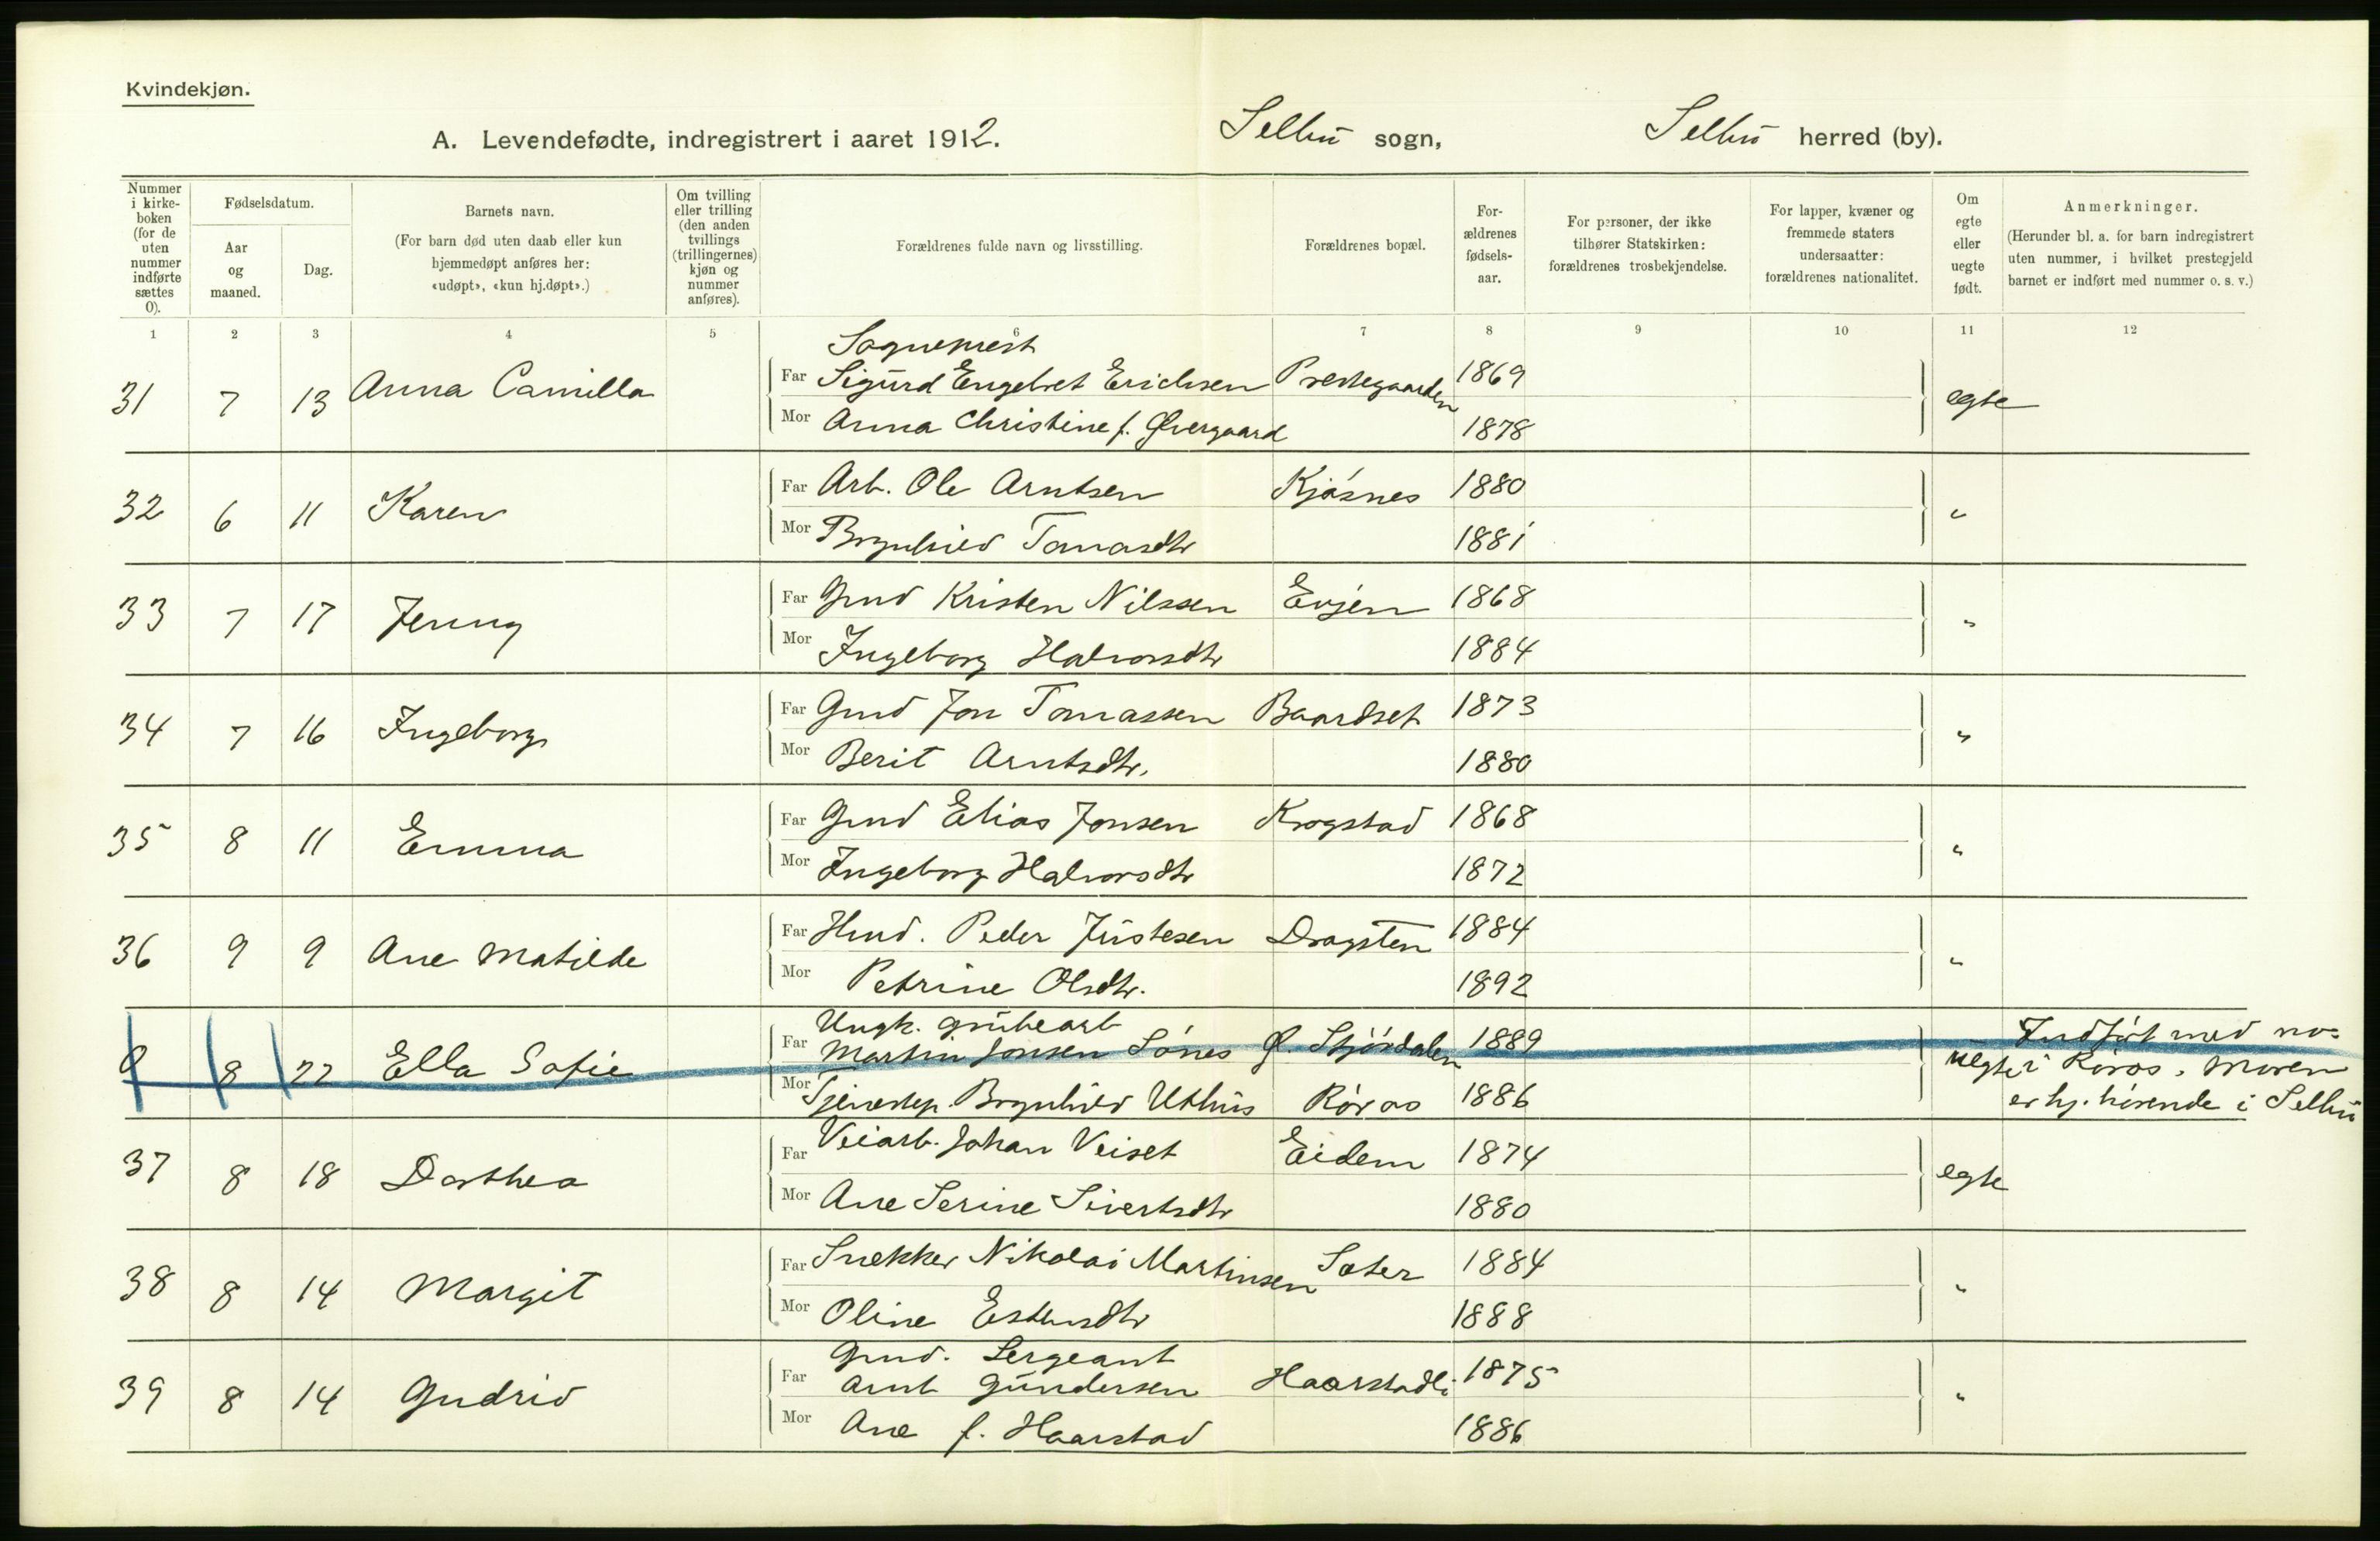 Kvindekjøn.
A. Levendefødte, indregistrert i aaret 1912. Selbu sogn, Selbu herred (by).
Nummer i kirke-boken (for de uten nummer indførte sættes 0).
Fødselsdatum.
Aar og maaned.
Dag.
Barnets navn.
(For barn død uten daab eller kun hjemmedøpt anføres her: «udøpt», «kun hj.døpt».)
Om tvilling eller trilling (den anden tvillings (trillingernes) kjøn og nummer anføres).
Forældrenes fulde navn og livsstilling.
Forældrenes bopæl.
For-ældrenes fødsels-aar.
For personer, der ikke tilhører Statskirken: forældrenes trosbekjendelse.
For lapper, kvæner og fremmede staters undersaatter: forældrenes nationalitet.
Om egte eller uegte født.
Anmerkninger.
(Herunder bl. a. for barn indregistrert uten nummer, i hvilket prestegjeld barnet er indført med nummer o. s. v.)
1 2 3 4 5 6 7 8 9 10 11 12
Sogneprest
31 7 13 Anna Camilla Far Sigurd Engelbret Erichsen Prestegaarden 1869 egte
Mor Anna Christine f. Øvergaard 1878
32 6 11 Karen Far Arb. Ole Arntsen Kjøsnes 1880 "
Mor Brynhild Tomasdtr 1881
33 7 17 Jenny Far Gmd Kristen Nilssen Evjen 1868 "
Mor Ingeborg Halvorsdtr 1884
34 7 16 Ingeborg Far Gmd Jon Tomassen Baardset 1873 "
Mor Berit Arntsdtr. 1880
35 8 11 Emma Far Gmd Elias Jonsen Krogstad 1868 "
Mor Ingeborg Halvorsdtr 1872
36 9 9 Ane Matilde Far Hmd. Peder Justesen Dragsten 1884 "
Mor Petrine Olsdtr. 1892
Ungk. grubearb
0 8 22 Ella Sofie Far Martin Jonsen Sønes Ø. Stjørdalen 1889 uegte Indført med no.
i Røros, Moren
Mor Tjenestep. Brynhild Uthus Røros 1886 er hj. hørende i Selbu
37 8 18 Dorthea Far Veiarb. Johan Veiset Eidem 1874 egte
Mor Ane Serine Sivertsdtr 1880
38 8 14 Margit Far Snekker Nikolai Martinsen Sæter 1884 "
Mor Oline Estensdtr 1888
Gmd. Sergeant
39 8 14 Gudrid Far Arnt Gundersen Haarstadli 1875 "
Mor Ane f. Haarstad 1886